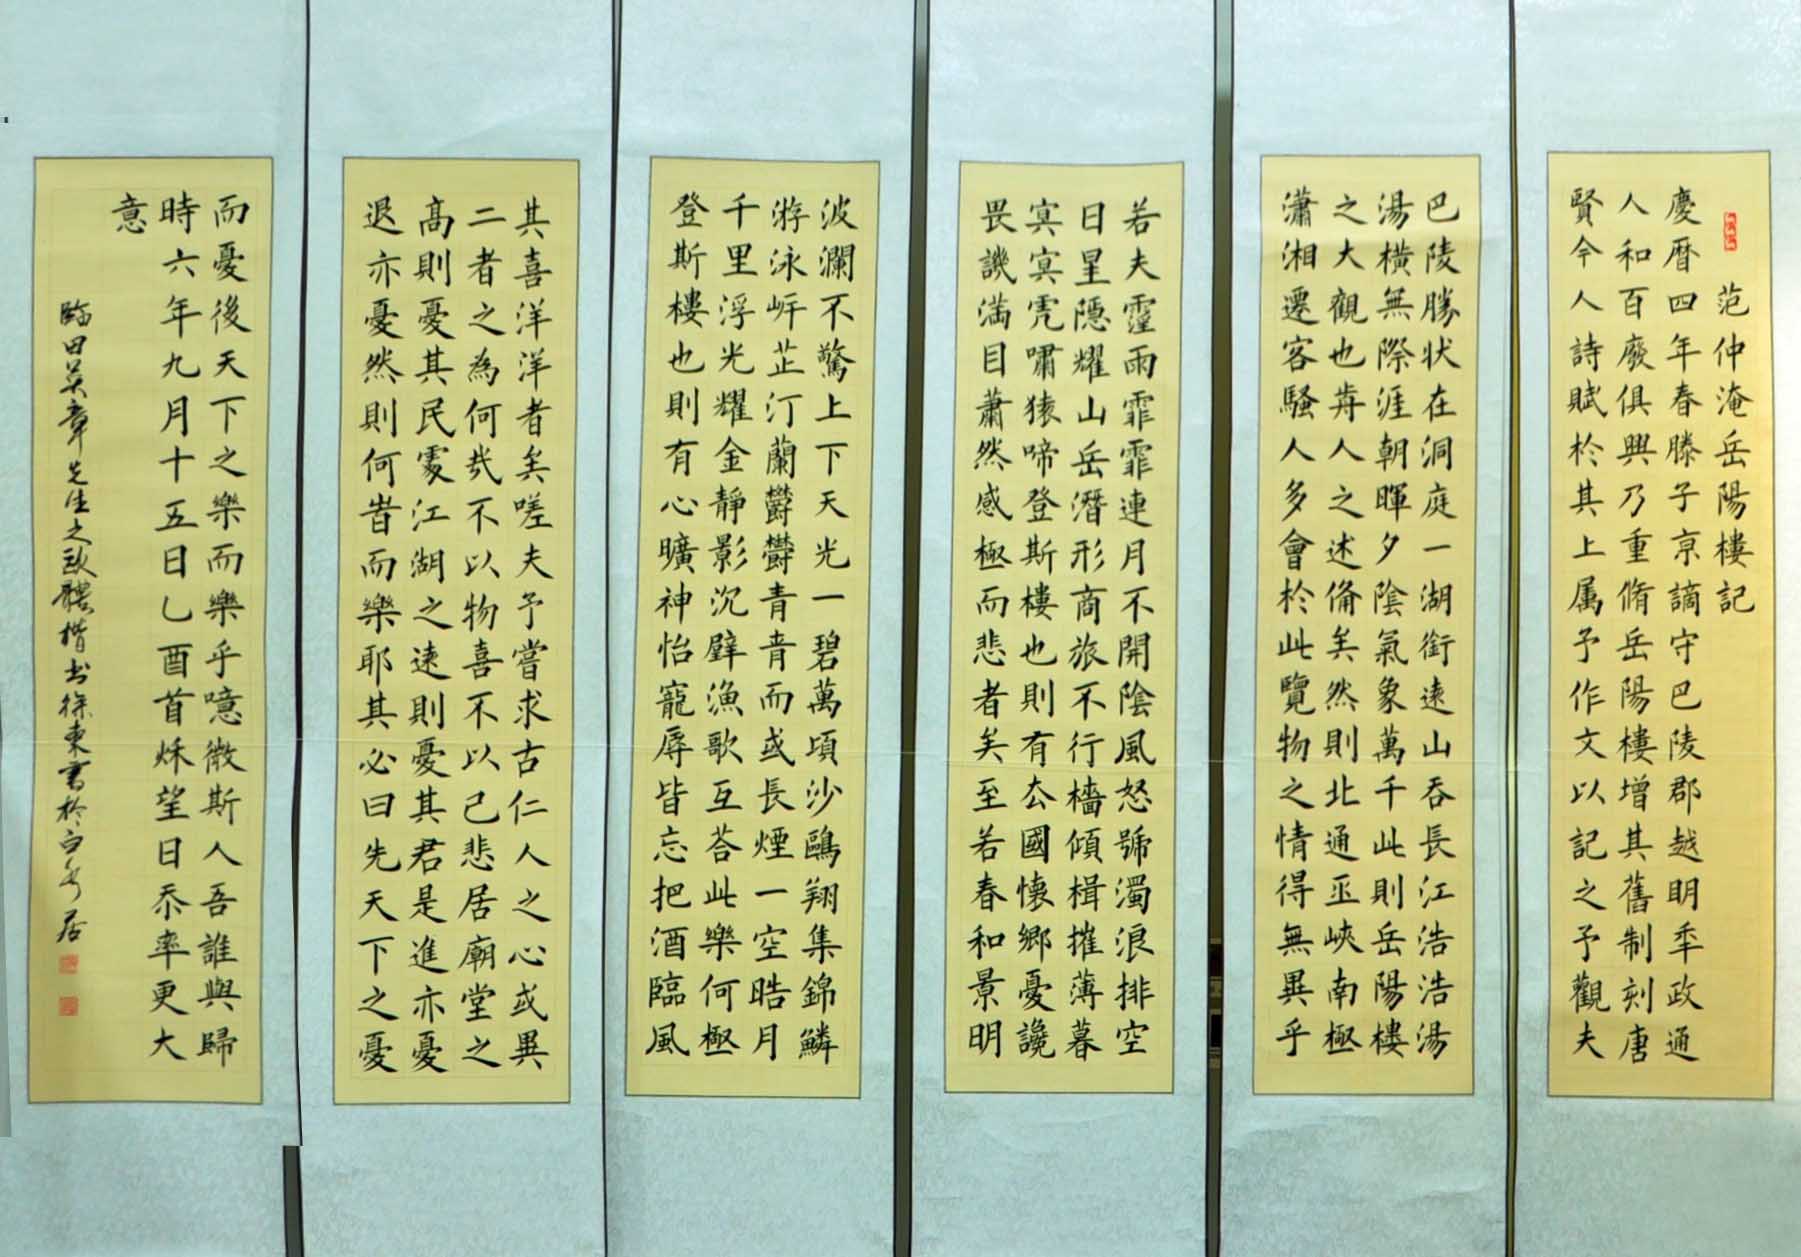 范仲淹岳陽樓記
慶暦四年春滕子京謫守巴陵郡越明年政通
人和百廢俱興乃重脩岳陽樓增其舊制刻唐
賢今人詩賦於其上属予作文以記之予觀夫
巴陵勝状在洞庭一湖銜遠山吞長江浩浩湯
湯橫無際涯朝暉夕陰氣象萬千此則岳陽樓
之大觀也前人之述備矣然則北通巫峽南極
瀟湘遷客騷人多會於此覽物之情得無異乎
若夫霪雨霏霏連月不開陰風怒號濁浪排空
日星隱耀山岳潛形商旅不行檣傾楫摧薄暮
冥冥虎嘯猿啼登斯樓也則有去國懷鄉憂讒
畏譏滿目蕭然感極而悲者矣至若春和景明
波瀾不驚上下天光一碧萬頃沙鷗翔集錦鱗
游泳岸芷汀蘭鬱鬱青青而或長煙一空皓月
千里浮光耀金靜影沉璧漁歌互荅此樂何極
登斯樓也則有心曠神怡寵辱皆忘把酒臨風
其喜洋洋者矣嗟夫予嘗求古仁人之心或異
二者之為何哉不以物喜不以己悲居廟堂之
高則憂其民處江湖之遠則憂其君是進亦憂
退亦憂然則何時而樂耶其必曰先天下之憂
而憂後天下之樂而樂乎噫微斯人吾誰與歸
時六年九月十五日乙酉首秌望日忝率更大
意
臨田英章先生之歐體楷書徐東書於白居